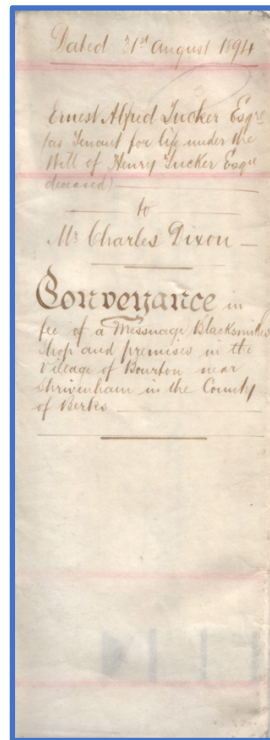 Dated 31st August 1894
Ernest Alfred Tucker Esqre
(as Tenant for life under the
Will of Henry Tucker Esqre
deceased)
to
Mr Charles Dixon
Conveyance in
fee of a Messuage Blacksmiths
Shop and premises in the
Village of Bourton near
Shrivenham in the County
of Berks